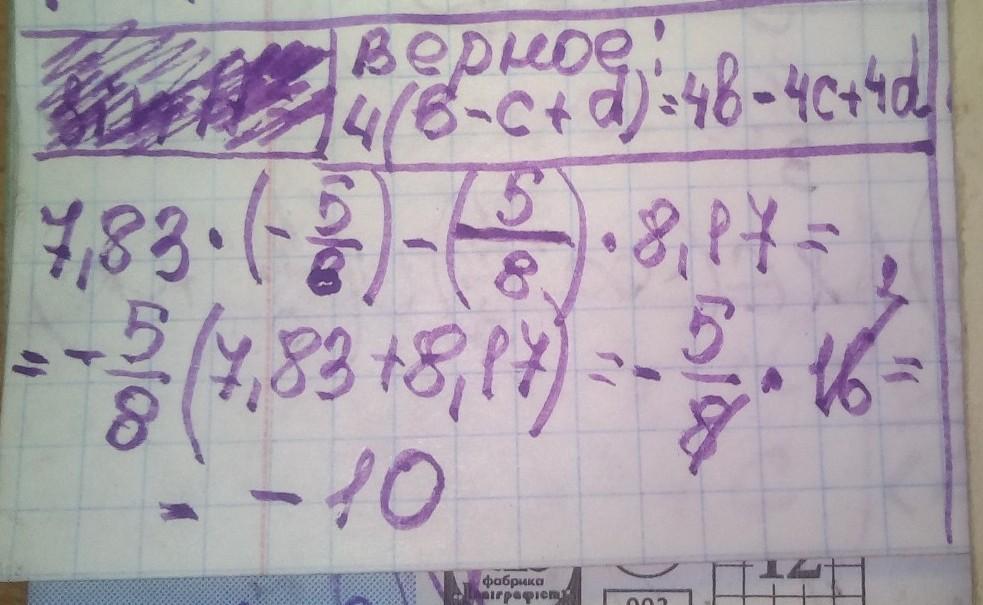 верное:
4(в-c+d)=4в-4c+4d
7,83·(-5/8)-(5/8)·8,17=
=-5/8(7,83+8,17)=-5/8·16=
= -10
фабрика
12
003